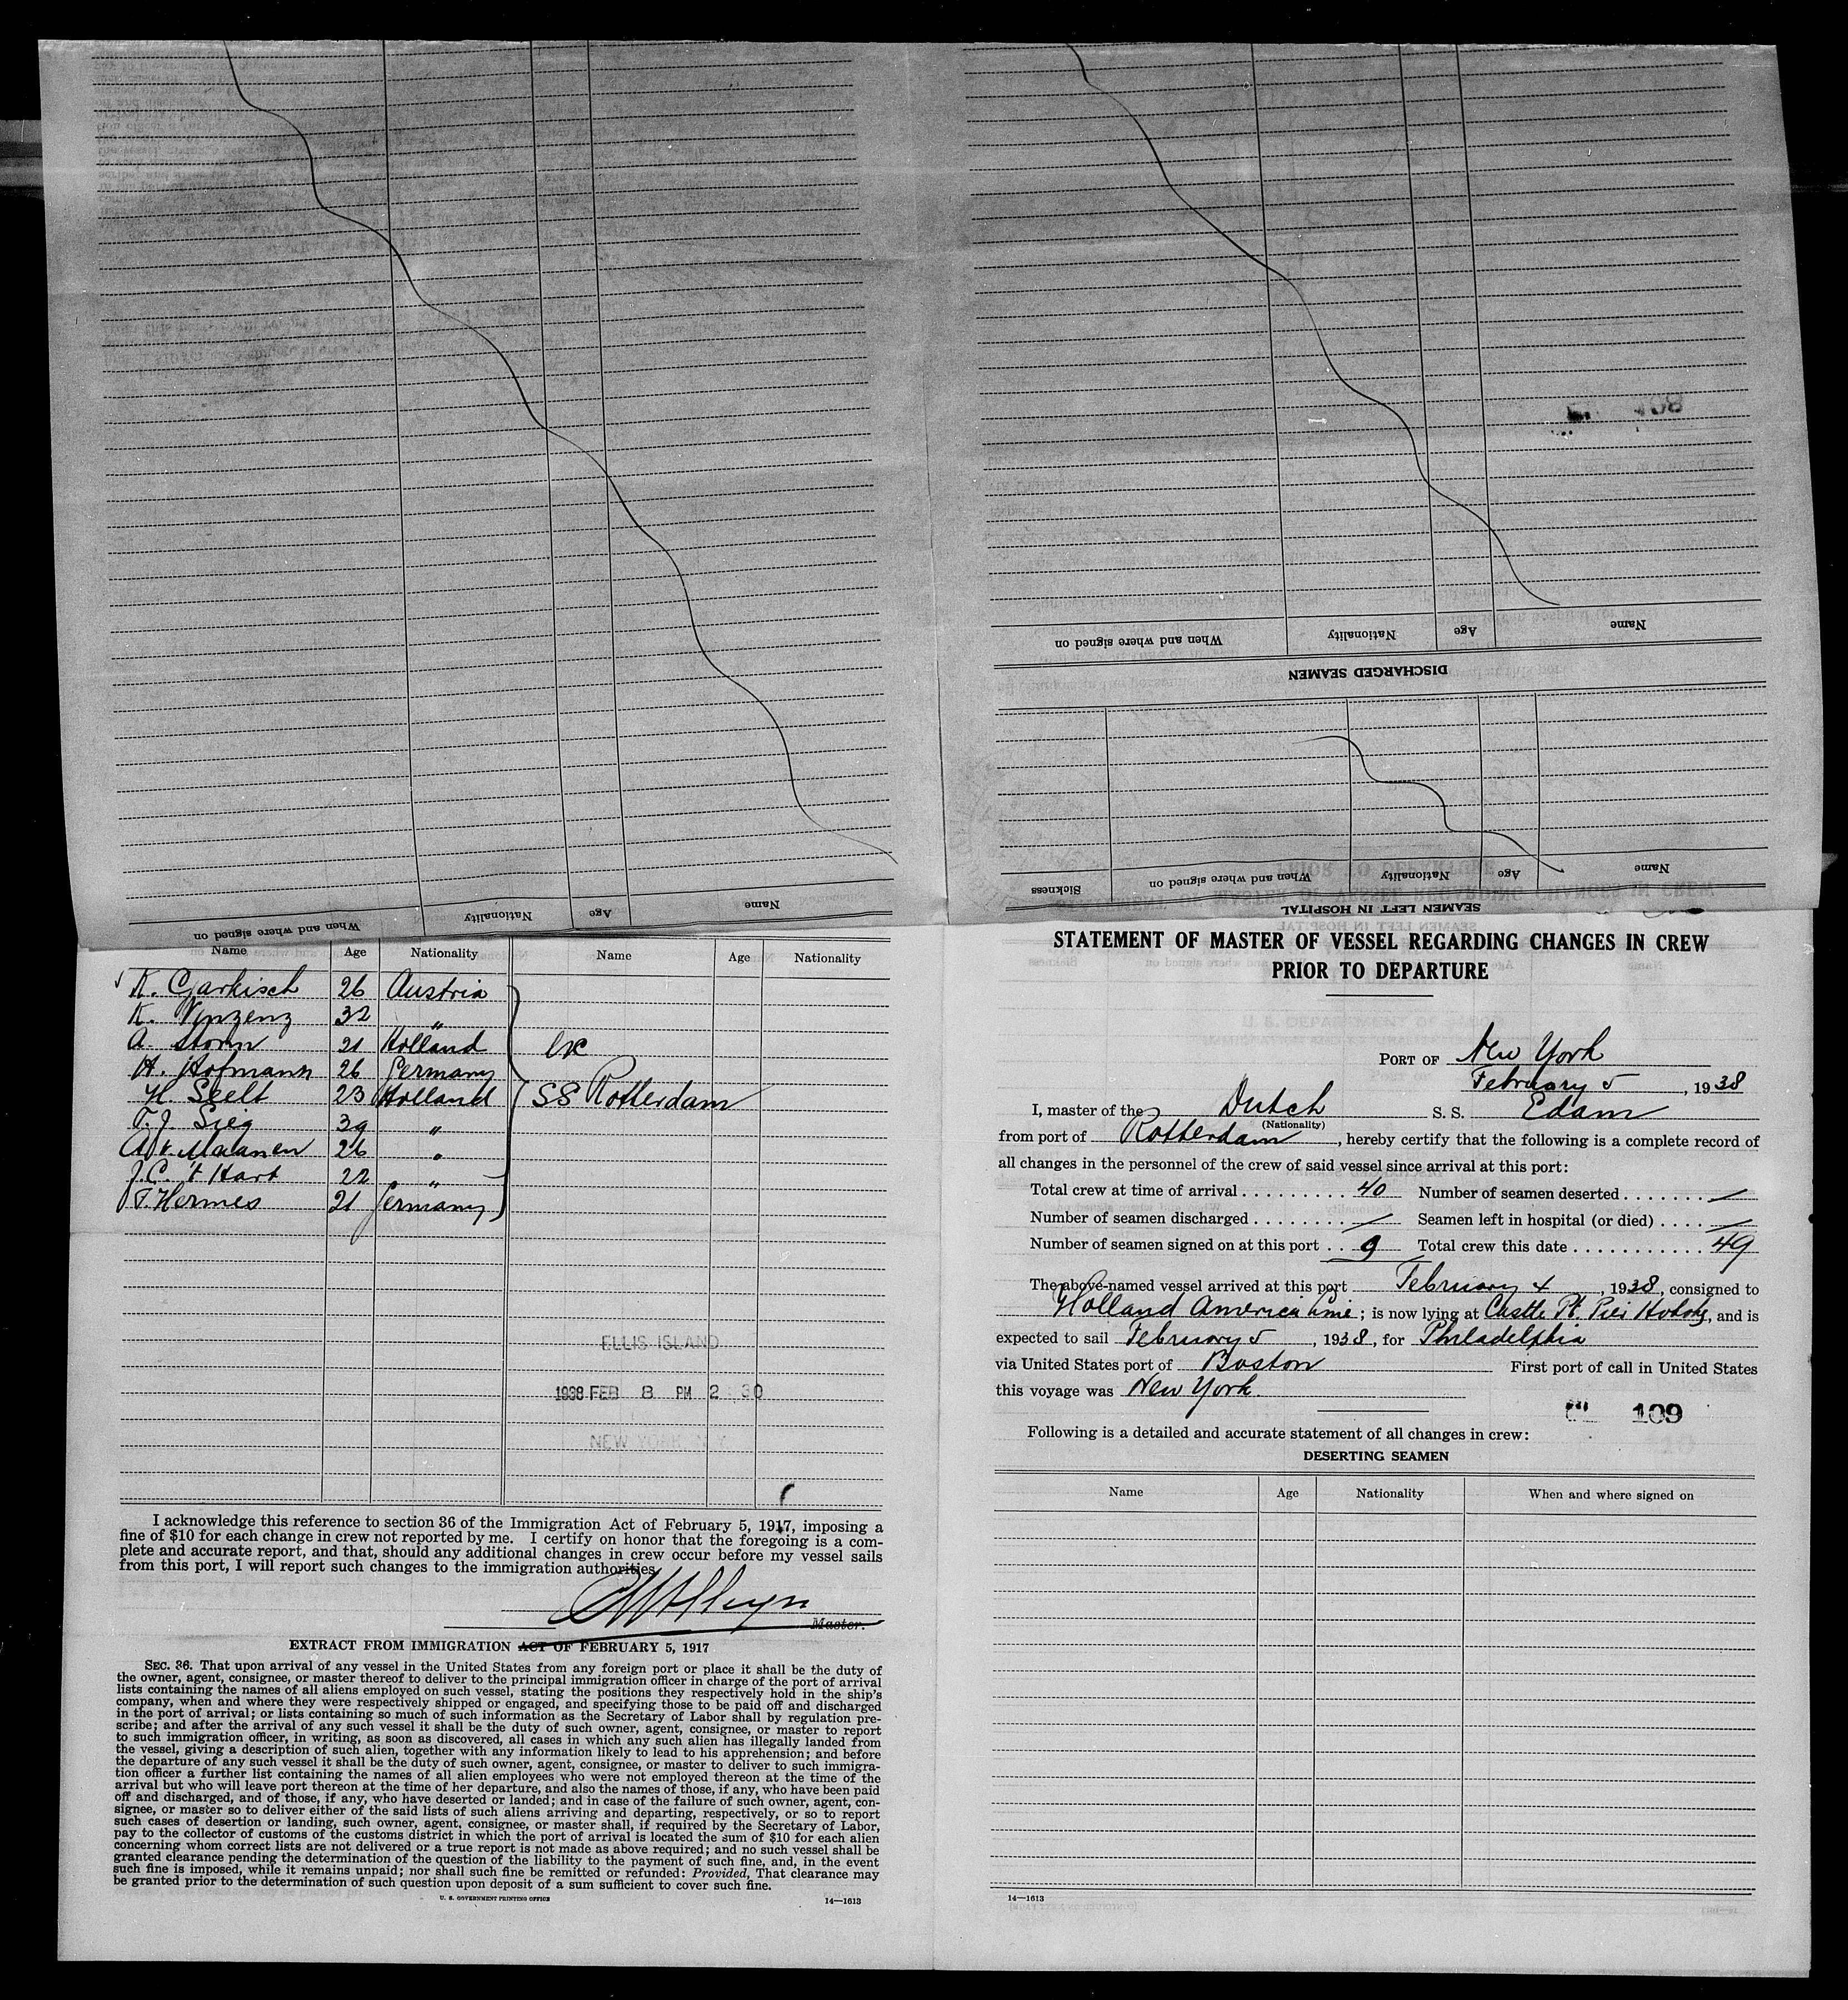 When and where signed on
Nationality
Age
Name
Name
Age
Nationality
When and where signed on
DISCHARGED SEAMEN
Name
Age
Nationality
When and where signed on
Sickness
SEAMEN LEFT IN HOSPITAL
Name Age Nationality Name Age Nationality
K. Garkisch 26 Austria
K. Vinzenz 32 "
A. Storm 21 Holland ex
H. Hofmann 26 Germany
H. Seelt 23 Holland SS Rotterdam
T. J. Sieg 39 "
A. v. Maanen 26 "
J. C. 't Hart 22 "
T. Hermes 21 Germany
ELLIS ISLAND
1938 FEB 8 PM 2 30
NEW YORK N Y
I acknowledge this reference to section 36 of the Immigration Act of February 5, 1917, imposing a
fine of $10 for each change in crew not reported by me. I certify on honor that the foregoing is a com-
plete and accurate report, and that, should any additional changes in crew occur before my vessel sails
from this port, I will report such changes to the immigration authorities.
Master.
EXTRACT FROM IMMIGRATION ACT OF FEBRUARY 5, 1917
SEC. 36. That upon arrival of any vessel in the United States from any foreign port or place it shall be the duty of
the owner, agent, consignee, or master thereof to deliver to the principal immigration officer in charge of the port of arrival
lists containing the names of all aliens employed on such vessel, stating the positions they respectively hold in the ship's
company, when and where they were respectively shipped or engaged, and specifying those to be paid off and discharged
in the port of arrival; or lists containing so much of such information as the Secretary of Labor shall by regulation pre-
scribe; and after the arrival of any such vessel it shall be the duty of such owner, agent, consignee, or master to report
to such immigration officer, in writing, as soon as discovered, all cases in which any such alien has illegally landed from
the vessel, giving a description of such alien, together with any information likely to lead to his apprehension; and before
the departure of any such vessel it shall be the duty of such owner, agent, consignee, or master to deliver to such immigra-
tion officer a further list containing the names of all alien employees who were not employed thereon at the time of the
arrival but who will leave port thereon at the time of her departure, and also the names of those, if any, who have been paid
off and discharged, and of those, if any, who have deserted or landed; and in case of the failure of such owner, agent, con-
signee, or master so to deliver either of the said lists of such aliens arriving and departing, respectively, or so to report
such cases of desertion or landing, such owner, agent, consignee, or master shall, if required by the Secretary of Labor,
pay to the collector of customs of the customs district in which the port of arrival is located the sum of $10 for each alien
concerning whom correct lists are not delivered or a true report is not made as above required; and no such vessel shall be
granted clearance pending the determination of the question of the liability to the payment of such fine, and, in the event
such fine is imposed, while it remains unpaid; nor shall such fine be remitted or refunded: Provided, That clearance may
be granted prior to the determination of such question upon deposit of a sum sufficient to cover such fine.
U. S. GOVERNMENT PRINTING OFFICE 14—1613
STATEMENT OF MASTER OF VESSEL REGARDING CHANGES IN CREW
PRIOR TO DEPARTURE
PORT OF New York
February 5, 1938
I, master of the Dutch S. S. Edam
(Nationality)
from port of Rotterdam, hereby certify that the following is a complete record of
all changes in the personnel of the crew of said vessel since arrival at this port:
Total crew at time of arrival 40 Number of seamen deserted —
Number of seamen discharged — Seamen left in hospital (or died) —
Number of seamen signed on at this port 9 Total crew this date 49
The above-named vessel arrived at this port February 4, 1938, consigned to
Holland America Line; is now lying at Castle Pt. Pier Hobok, and is
expected to sail February 5, 1938, for Philadelphia
via United States port of Boston First port of call in United States
this voyage was New York
109
Following is a detailed and accurate statement of all changes in crew:
DESERTING SEAMEN
Name Age Nationality When and where signed on
14—1613